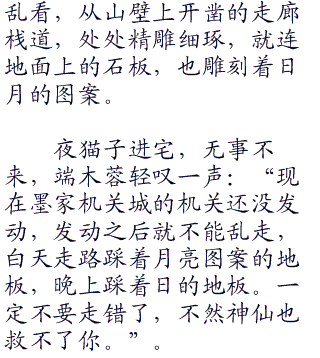 乱看，从山壁上开凿的走廊
栈道，处处精雕细琢，就连
地面上的石板，也雕刻着日
月的图案。
夜猫子进宅，无事不
来，端木蓉轻叹一声：“现
在墨家机关城的机关还没发
动，发动之后就不能乱走，
白天走路踩着月亮图案的地
板，晚上踩着日的地板。一
定不要走错了，不然神仙也
救不了你。”。